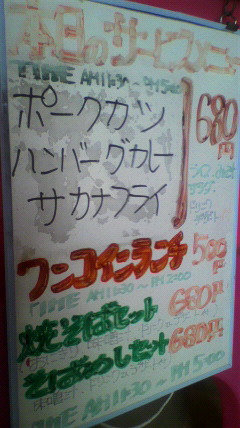 本日のサービスメニュー
TIME AM11:30 ~ PM5:00
ポークカツ
ハンバーグカレー
サカナフライ
680円
サラダ
ドリンク
ワンコインランチ 500円
TIME AM11:30 ~ PM2:00
焼そばセット 680円
そばめしセット 680円
TIME AM11:30 ~ PM5:00